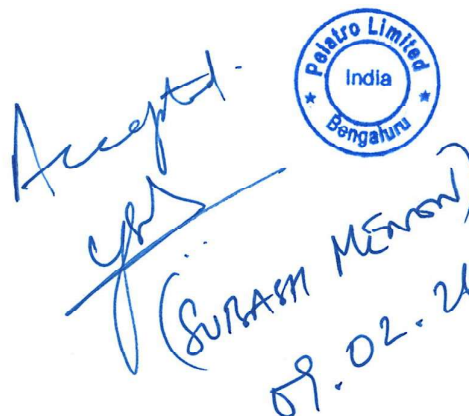 Accepted.
Pelatro Limited
India
★ Bengaluru ★
(SUBASH MENON)